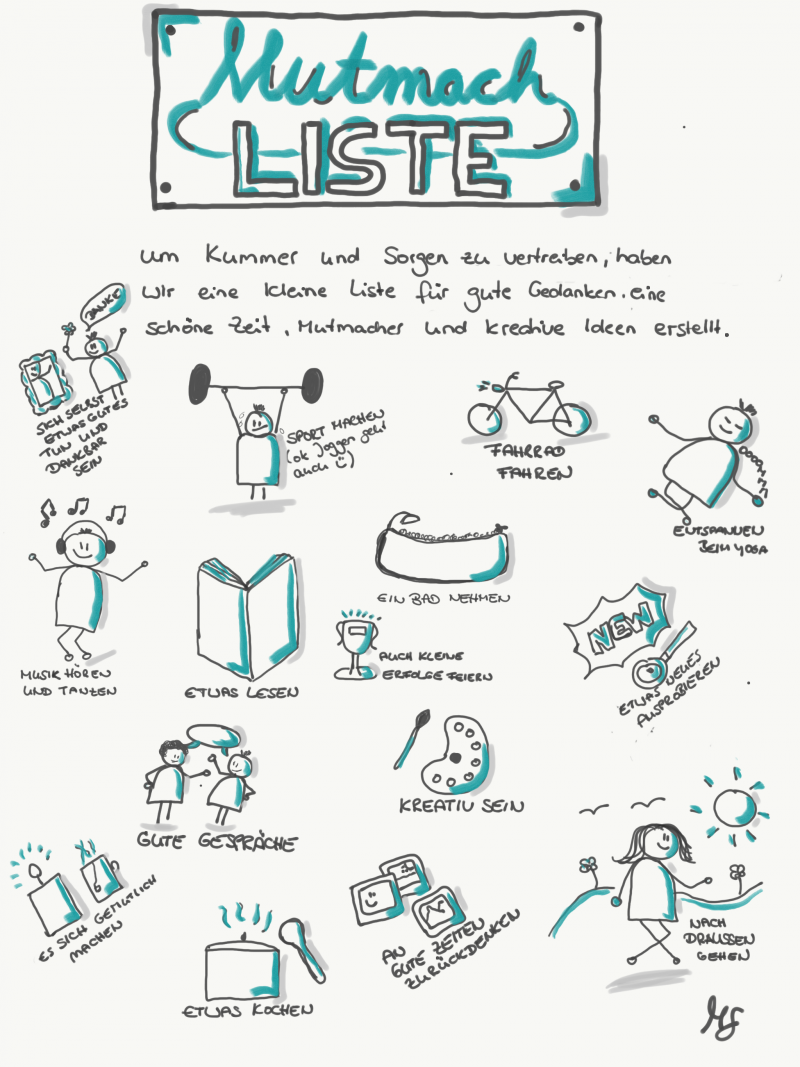 Mutmach
LISTE
um Kummer und Sorgen zu vertreiben, haben
wir eine kleine Liste für gute Gedanken, eine
schöne Zeit, Mutmacher und kreative Ideen erstellt.
DANKE
SICH SELBST
ETWAS GUTES
TUN UND
DANKBAR
SEIN
SPORT MACHEN
(ok joggen geht
auch Ü)
FAHRRAD
FAHREN
ENTSPANNEN
BEIM YOGA
MUSIK HÖREN
UND TANZEN
ETWAS LESEN
EIN BAD NEHMEN
AUCH KLEINE
ERFOLGE FEIERN
NEW
ETWAS NEUES
AUSPROBIEREN
GUTE GESPRÄCHE
KREATIV SEIN
ES SICH GEMÜTLICH
MACHEN
ETWAS KOCHEN
AN
GUTE ZEITEN
ZURÜCKDENKEN
NACH
DRAUSSEN
GEHEN